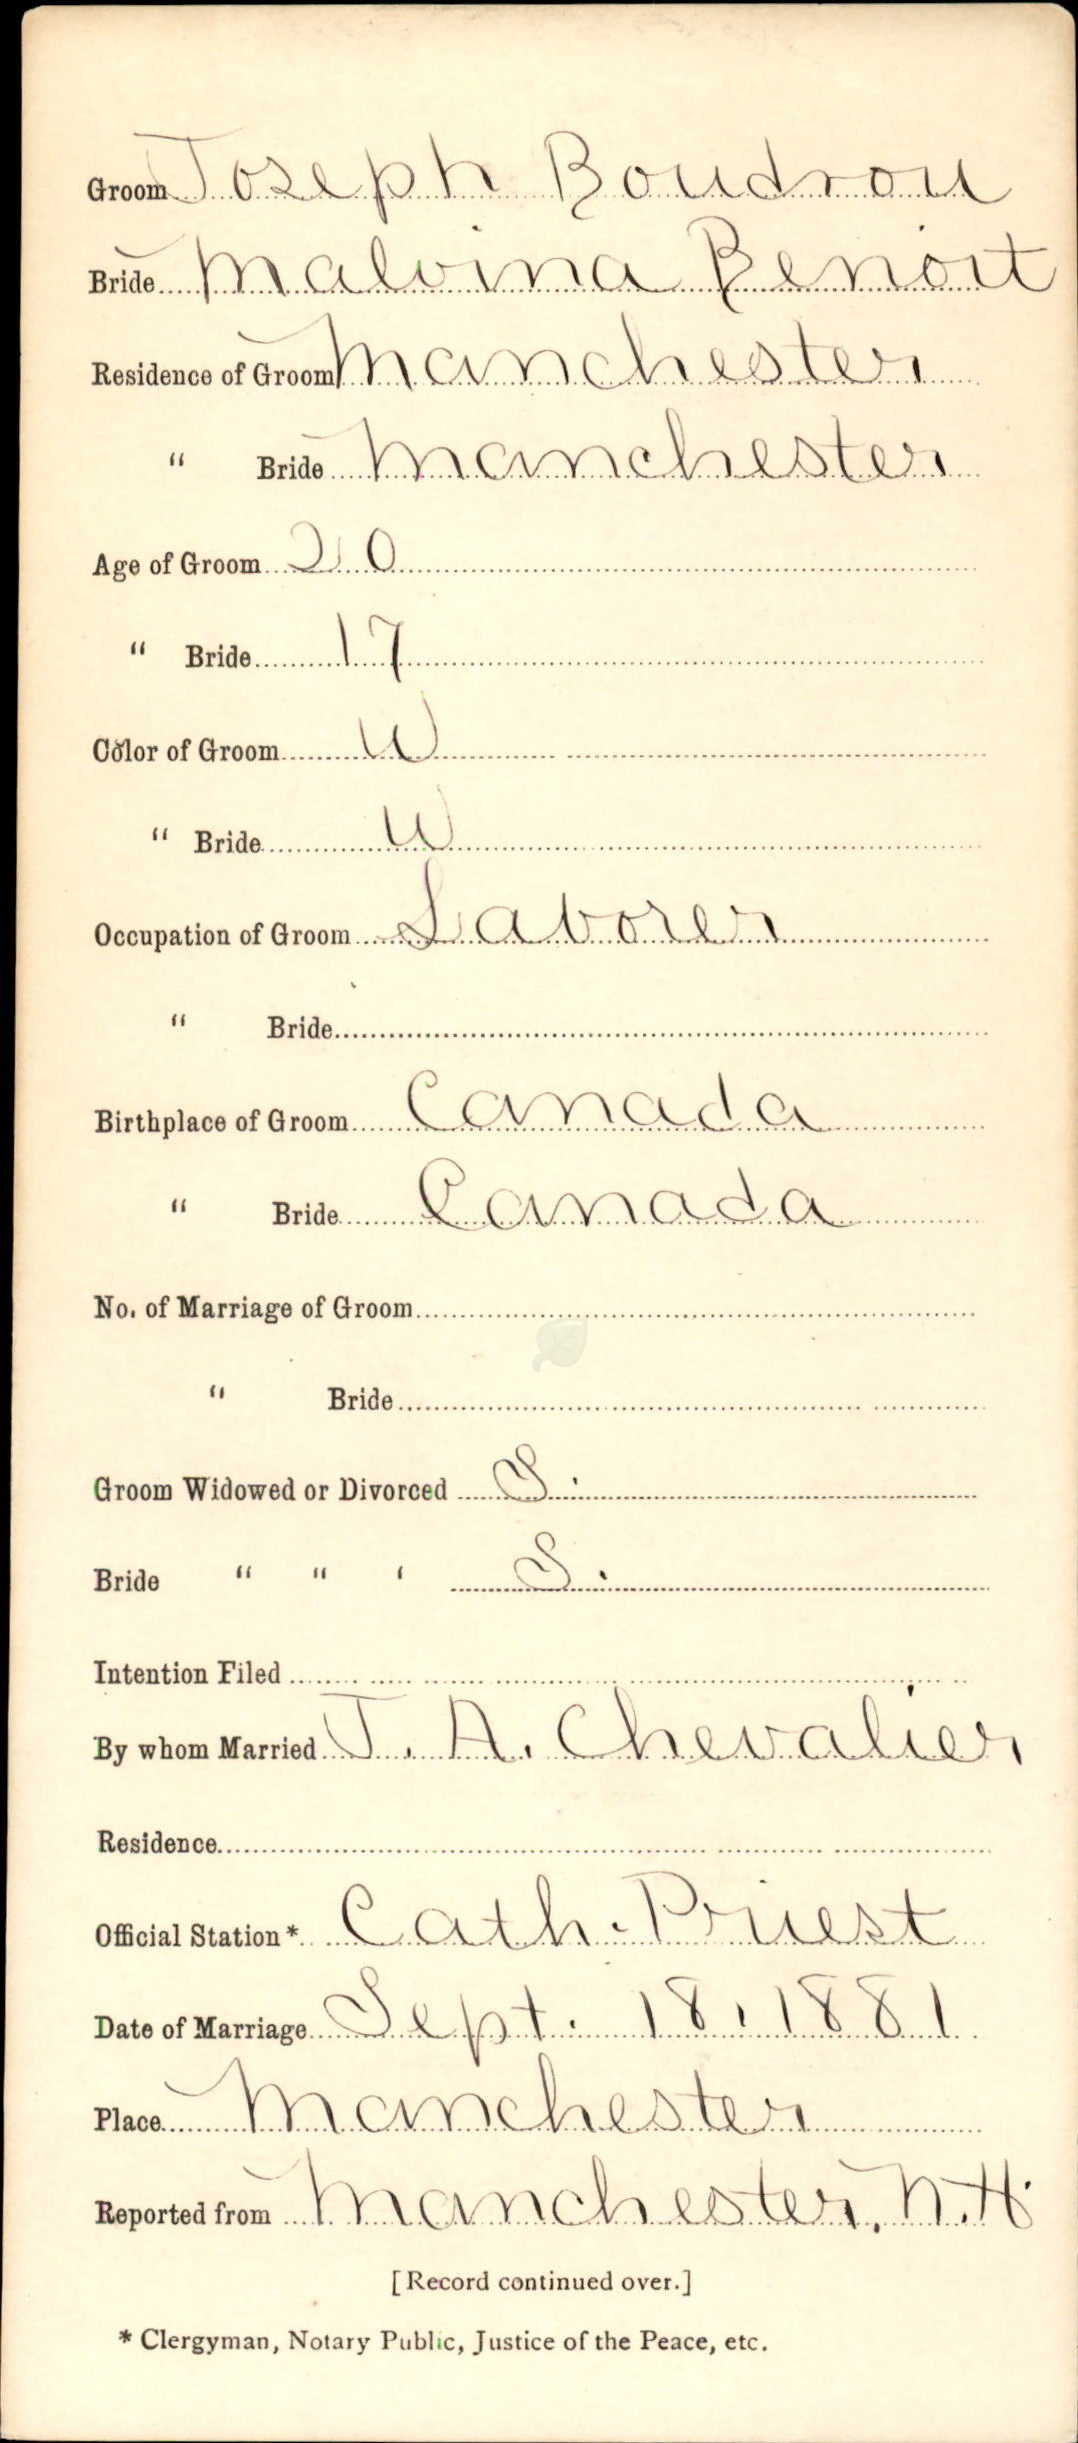 Groom Joseph Boudrou
Bride Malvina Benoit
Residence of Groom Manchester
" Bride Manchester
Age of Groom 20
" Bride 17
Color of Groom W
" Bride W
Occupation of Groom Laborer
" Bride
Birthplace of Groom Canada
" Bride Canada
No. of Marriage of Groom
" Bride
Groom Widowed or Divorced S.
Bride " " ' S.
Intention Filed
By whom Married J. A. Chevalier
Residence
Official Station* Cath. Priest
Date of Marriage Sept. 18, 1881
Place Manchester
Reported from Manchester, N.H.
[Record continued over.]
* Clergyman, Notary Public, Justice of the Peace, etc.